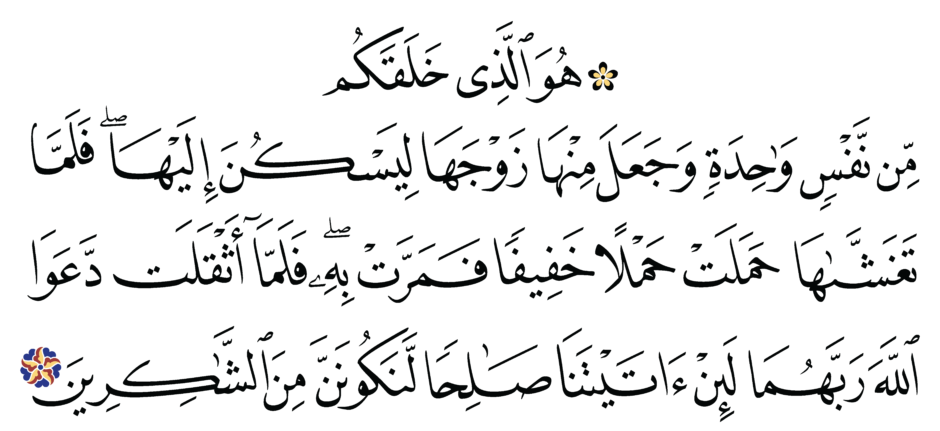 ۞ هُوَ ٱلَّذِى خَلَقَكُم
مِّن نَّفْسٍ وَٰحِدَةٍ وَجَعَلَ مِنْهَا زَوْجَهَا لِيَسْكُنَ إِلَيْهَا ۖ فَلَمَّا
تَغَشَّىٰهَا حَمَلَتْ حَمْلًا خَفِيفًا فَمَرَّتْ بِهِۦ ۖ فَلَمَّآ أَثْقَلَت دَّعَوَا
ٱللَّهَ رَبَّهُمَا لَئِنْ ءَاتَيْتَنَا صَـٰلِحًا لَّنَكُونَنَّ مِنَ ٱلشَّـٰكِرِينَ